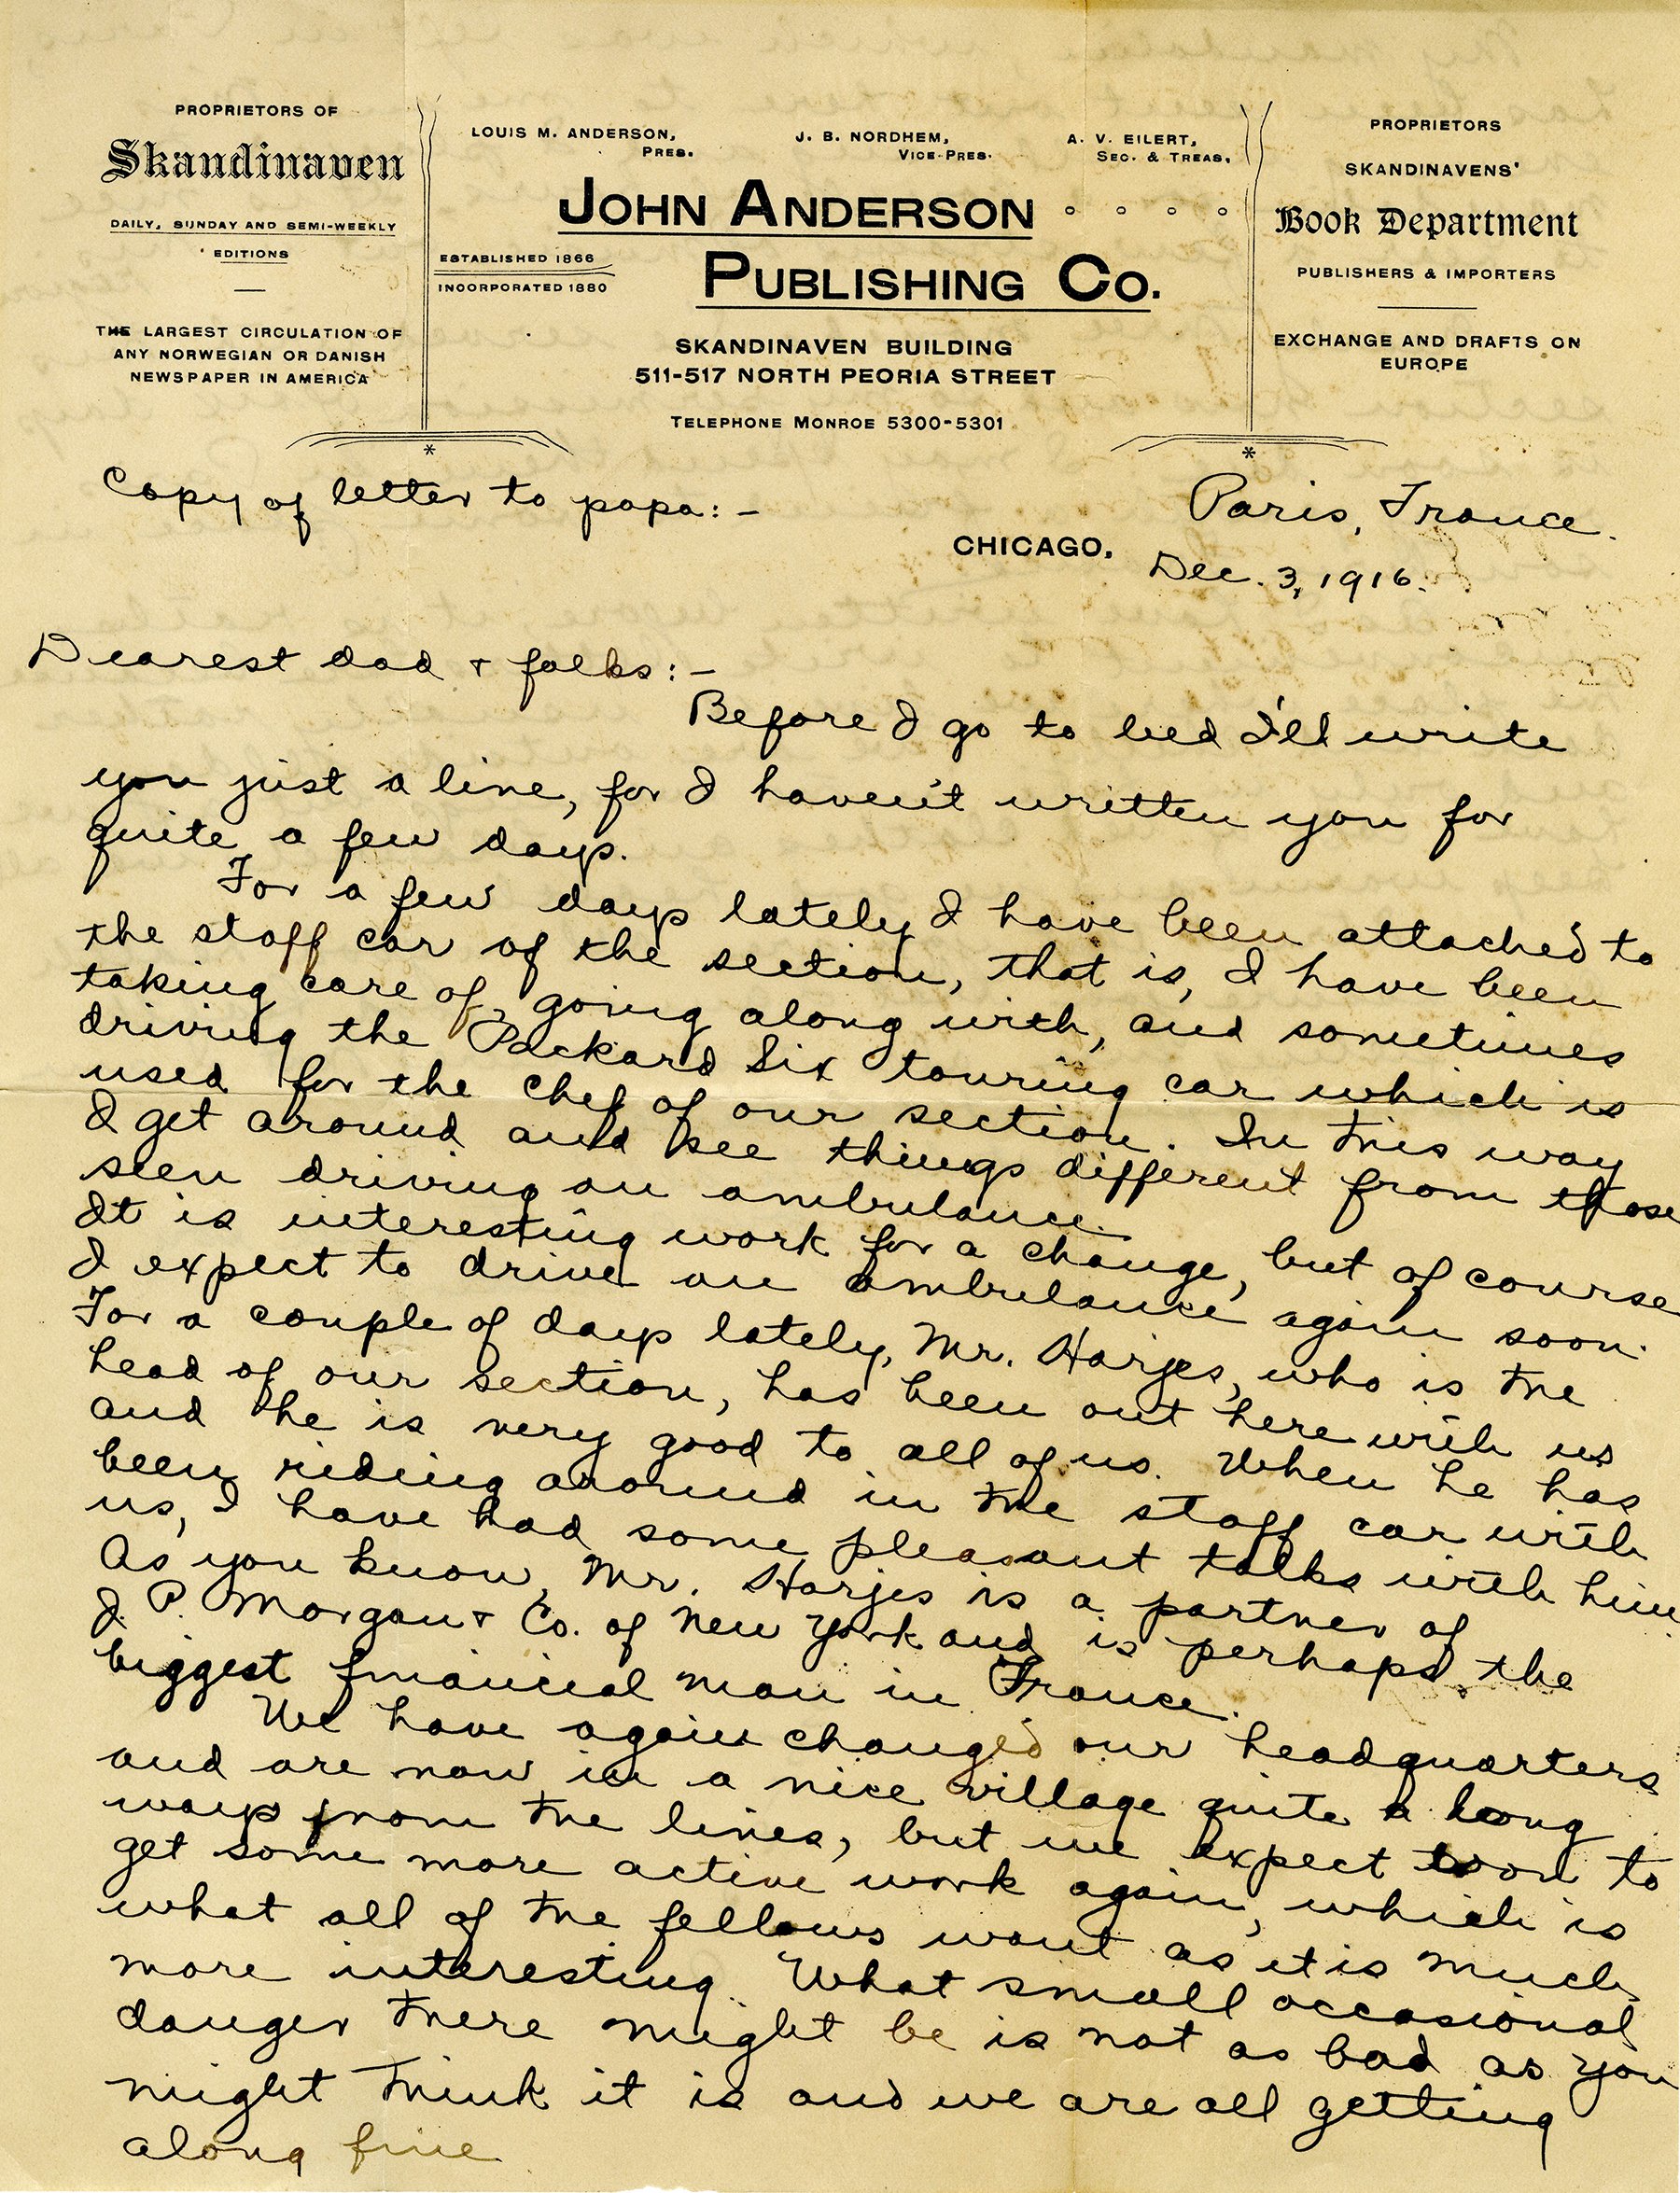 PROPRIETORS OF
Skandinaven
DAILY, SUNDAY AND SEMI-WEEKLY
EDITIONS
THE LARGEST CIRCULATION OF
ANY NORWEGIAN OR DANISH
NEWSPAPER IN AMERICA
LOUIS M. ANDERSON,
PRES.
J. B. NORDHEM,
VICE-PRES.
A. V. EILERT,
SEC. & TREAS.
JOHN ANDERSON
PUBLISHING CO.
ESTABLISHED 1866
INCORPORATED 1880
SKANDINAVEN BUILDING
511-517 NORTH PEORIA STREET
TELEPHONE MONROE 5300-5301
PROPRIETORS
SKANDINAVENS'
Book Department
PUBLISHERS & IMPORTERS
EXCHANGE AND DRAFTS ON
EUROPE
Copy of letter to papa:-
Paris, France.
CHICAGO,
Dec. 3, 1916.
Dearest dad & folks:-
Before I go to bed I'll write
you just a line, for I haven't written you for
quite a few days.
For a few days lately I have been attached to
the staff car of the section, that is, I have been
taking care of, going along with, and sometimes
driving the Packard Six touring car which is
used for the chef of our section. In this way
I get around and see things different from those
seen driving an ambulance.
It is interesting work for a change, but of course
I expect to drive an ambulance again soon.
For a couple of days lately, Mr. Harjes, who is the
head of our section, has been out here with us
and he is very good to all of us. When he has
been riding around in the staff car with
us, I have had some pleasant talks with him.
As you know, Mr. Harjes is a partner of
J. P. Morgan & Co. of New York and is perhaps the
biggest financial man in France.
We have again changed our headquarters
and are now in a nice village quite a long
ways from the lines, but we expect soon to
get some more active work again, which is
what all of the fellows want as it is much
more interesting. What small occasional
danger there might be is not as bad as you
might think it is and we are all getting
along fine